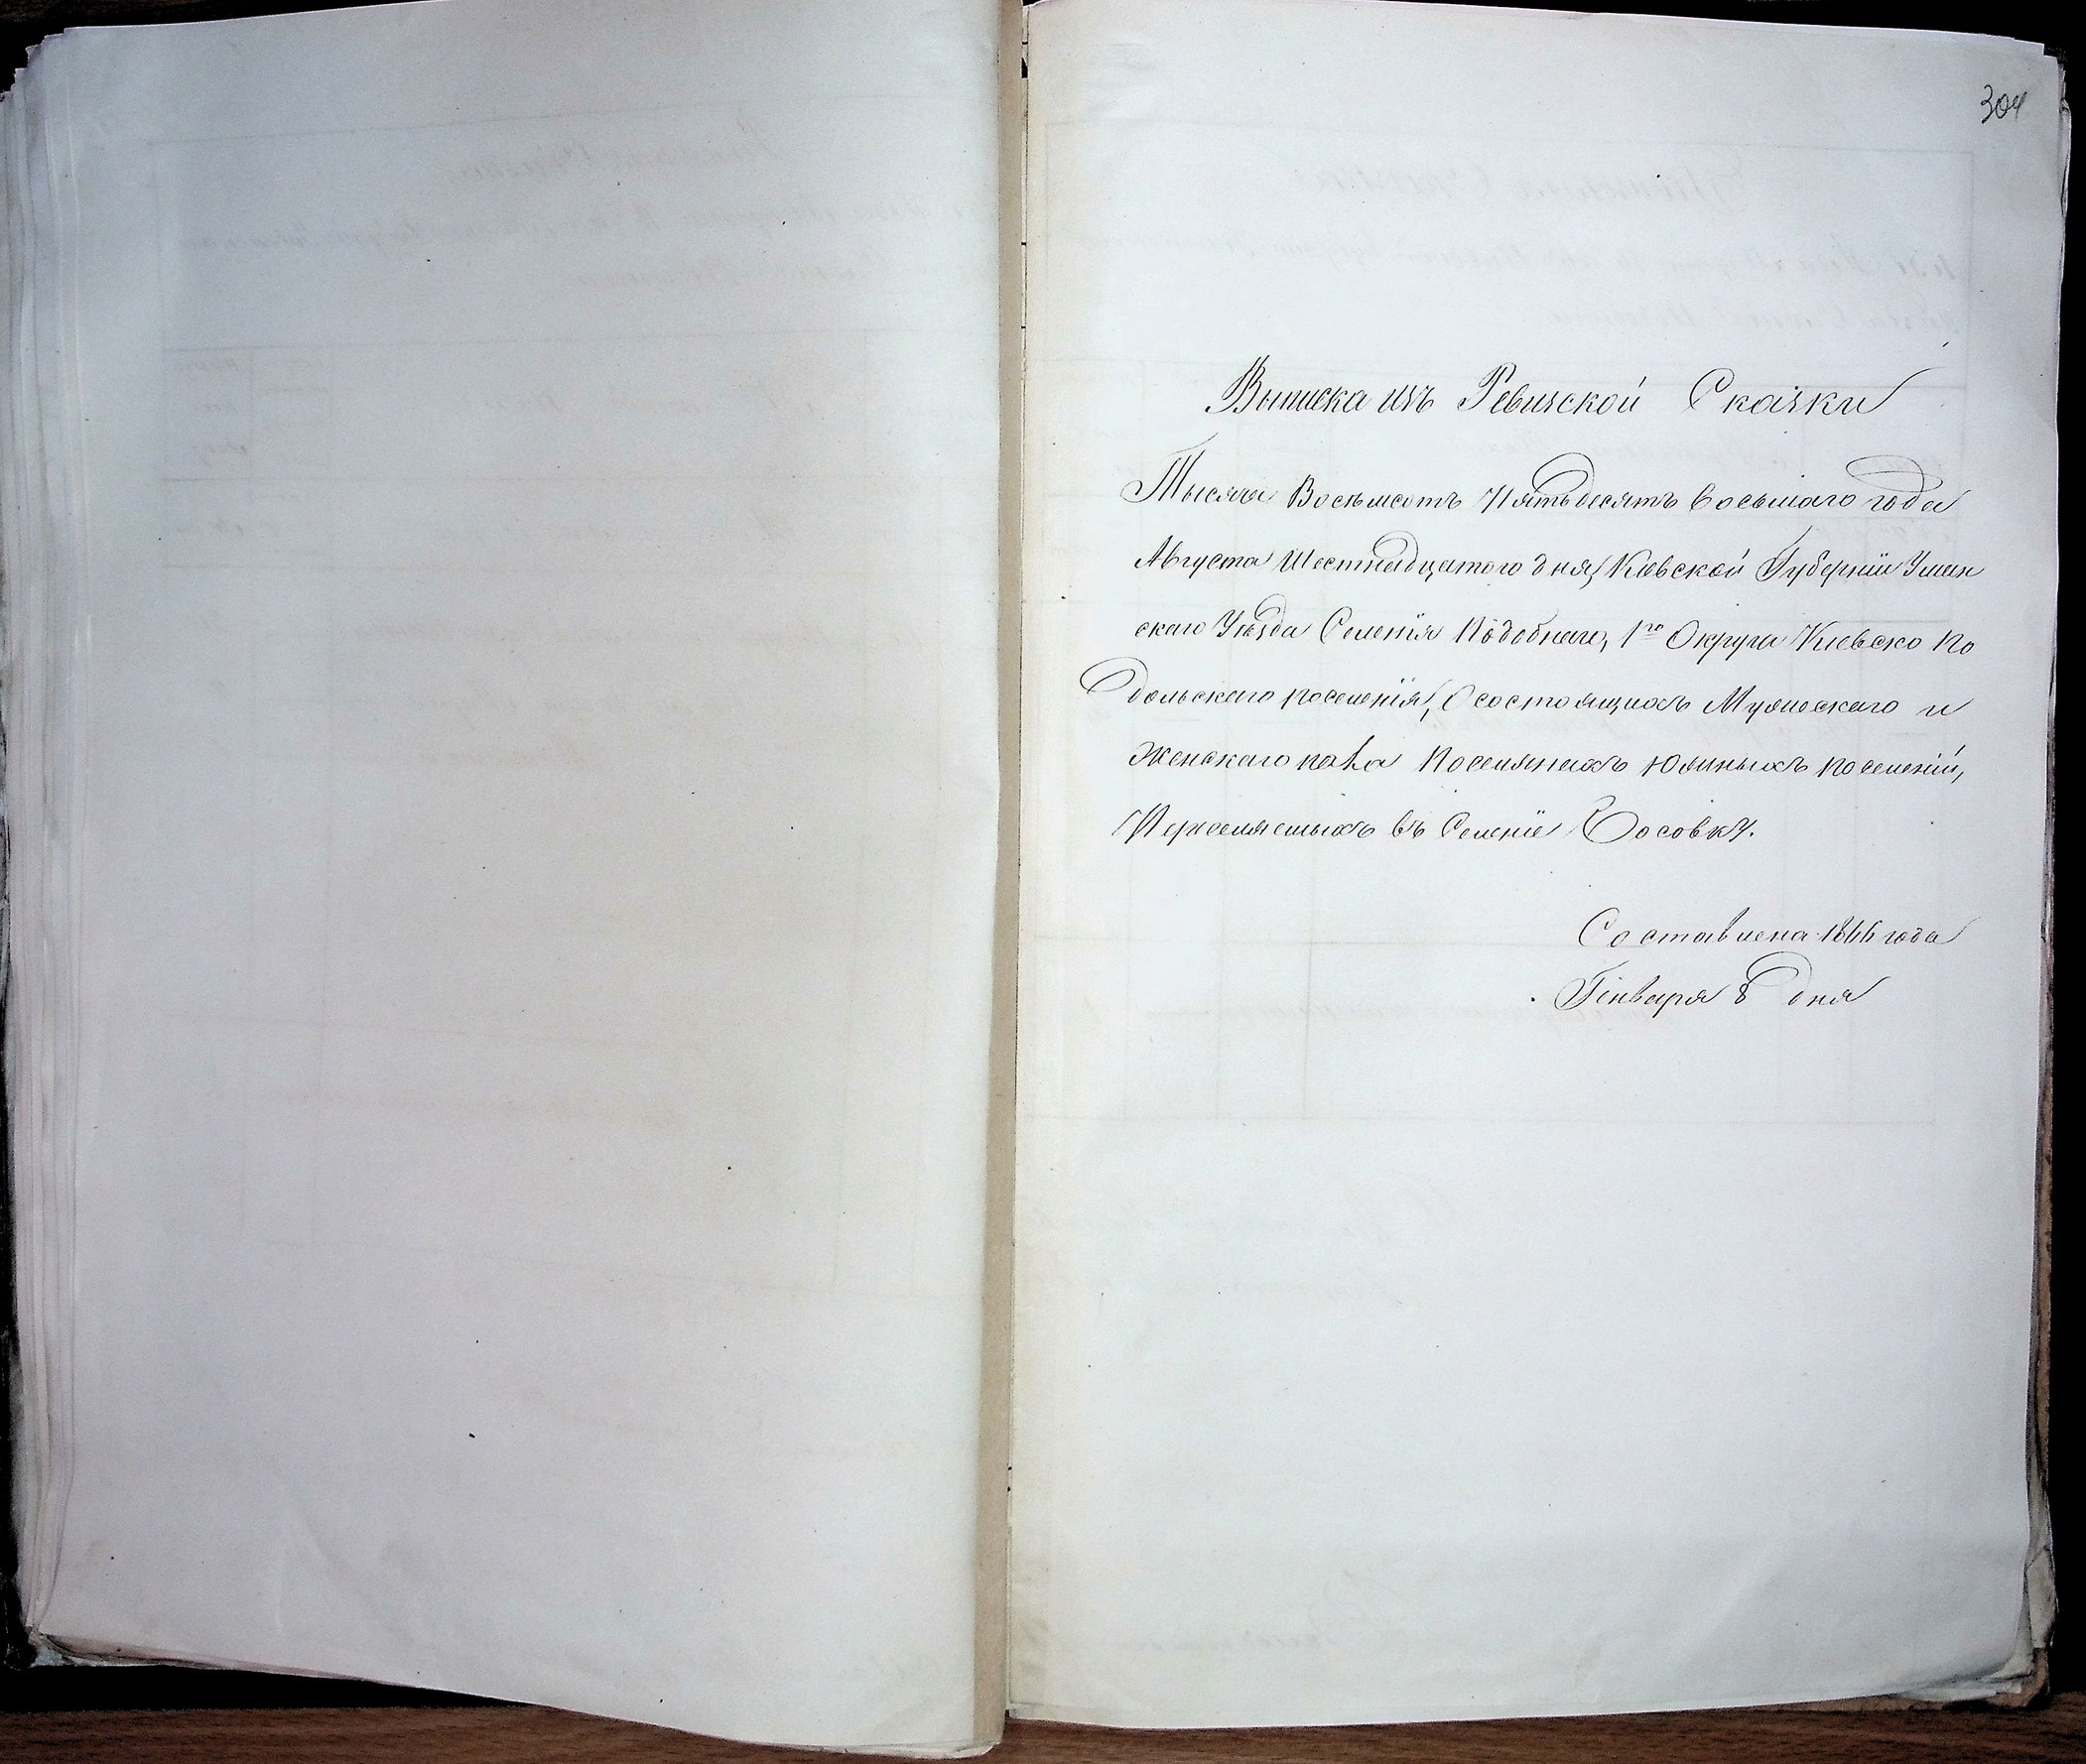 304
Выписка изъ Ревизской Сказки
Тысяча Восемсотъ Пятьдесятъ восьмаго года
Августа Шестнадцатого дня, Кіевской Губерніи Уман
скаго Уѣзда Селенія Подобнаго, 1го Округа Киевско По
дольскаго поселенія, О состоящихъ Мужескаго и
Женскаго пола Поселянахъ Южныхъ поселеній,
Переселяемыхъ въ Селеніе Косовку.
Составлена 1866 года
Генваря 8 дня